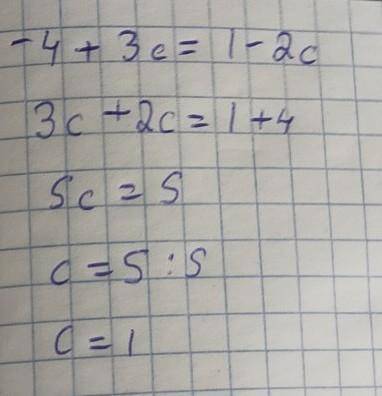 -4 + 3c = 1 - 2c
3c + 2c = 1 + 4
5c = 5
c = 5 : 5
c = 1